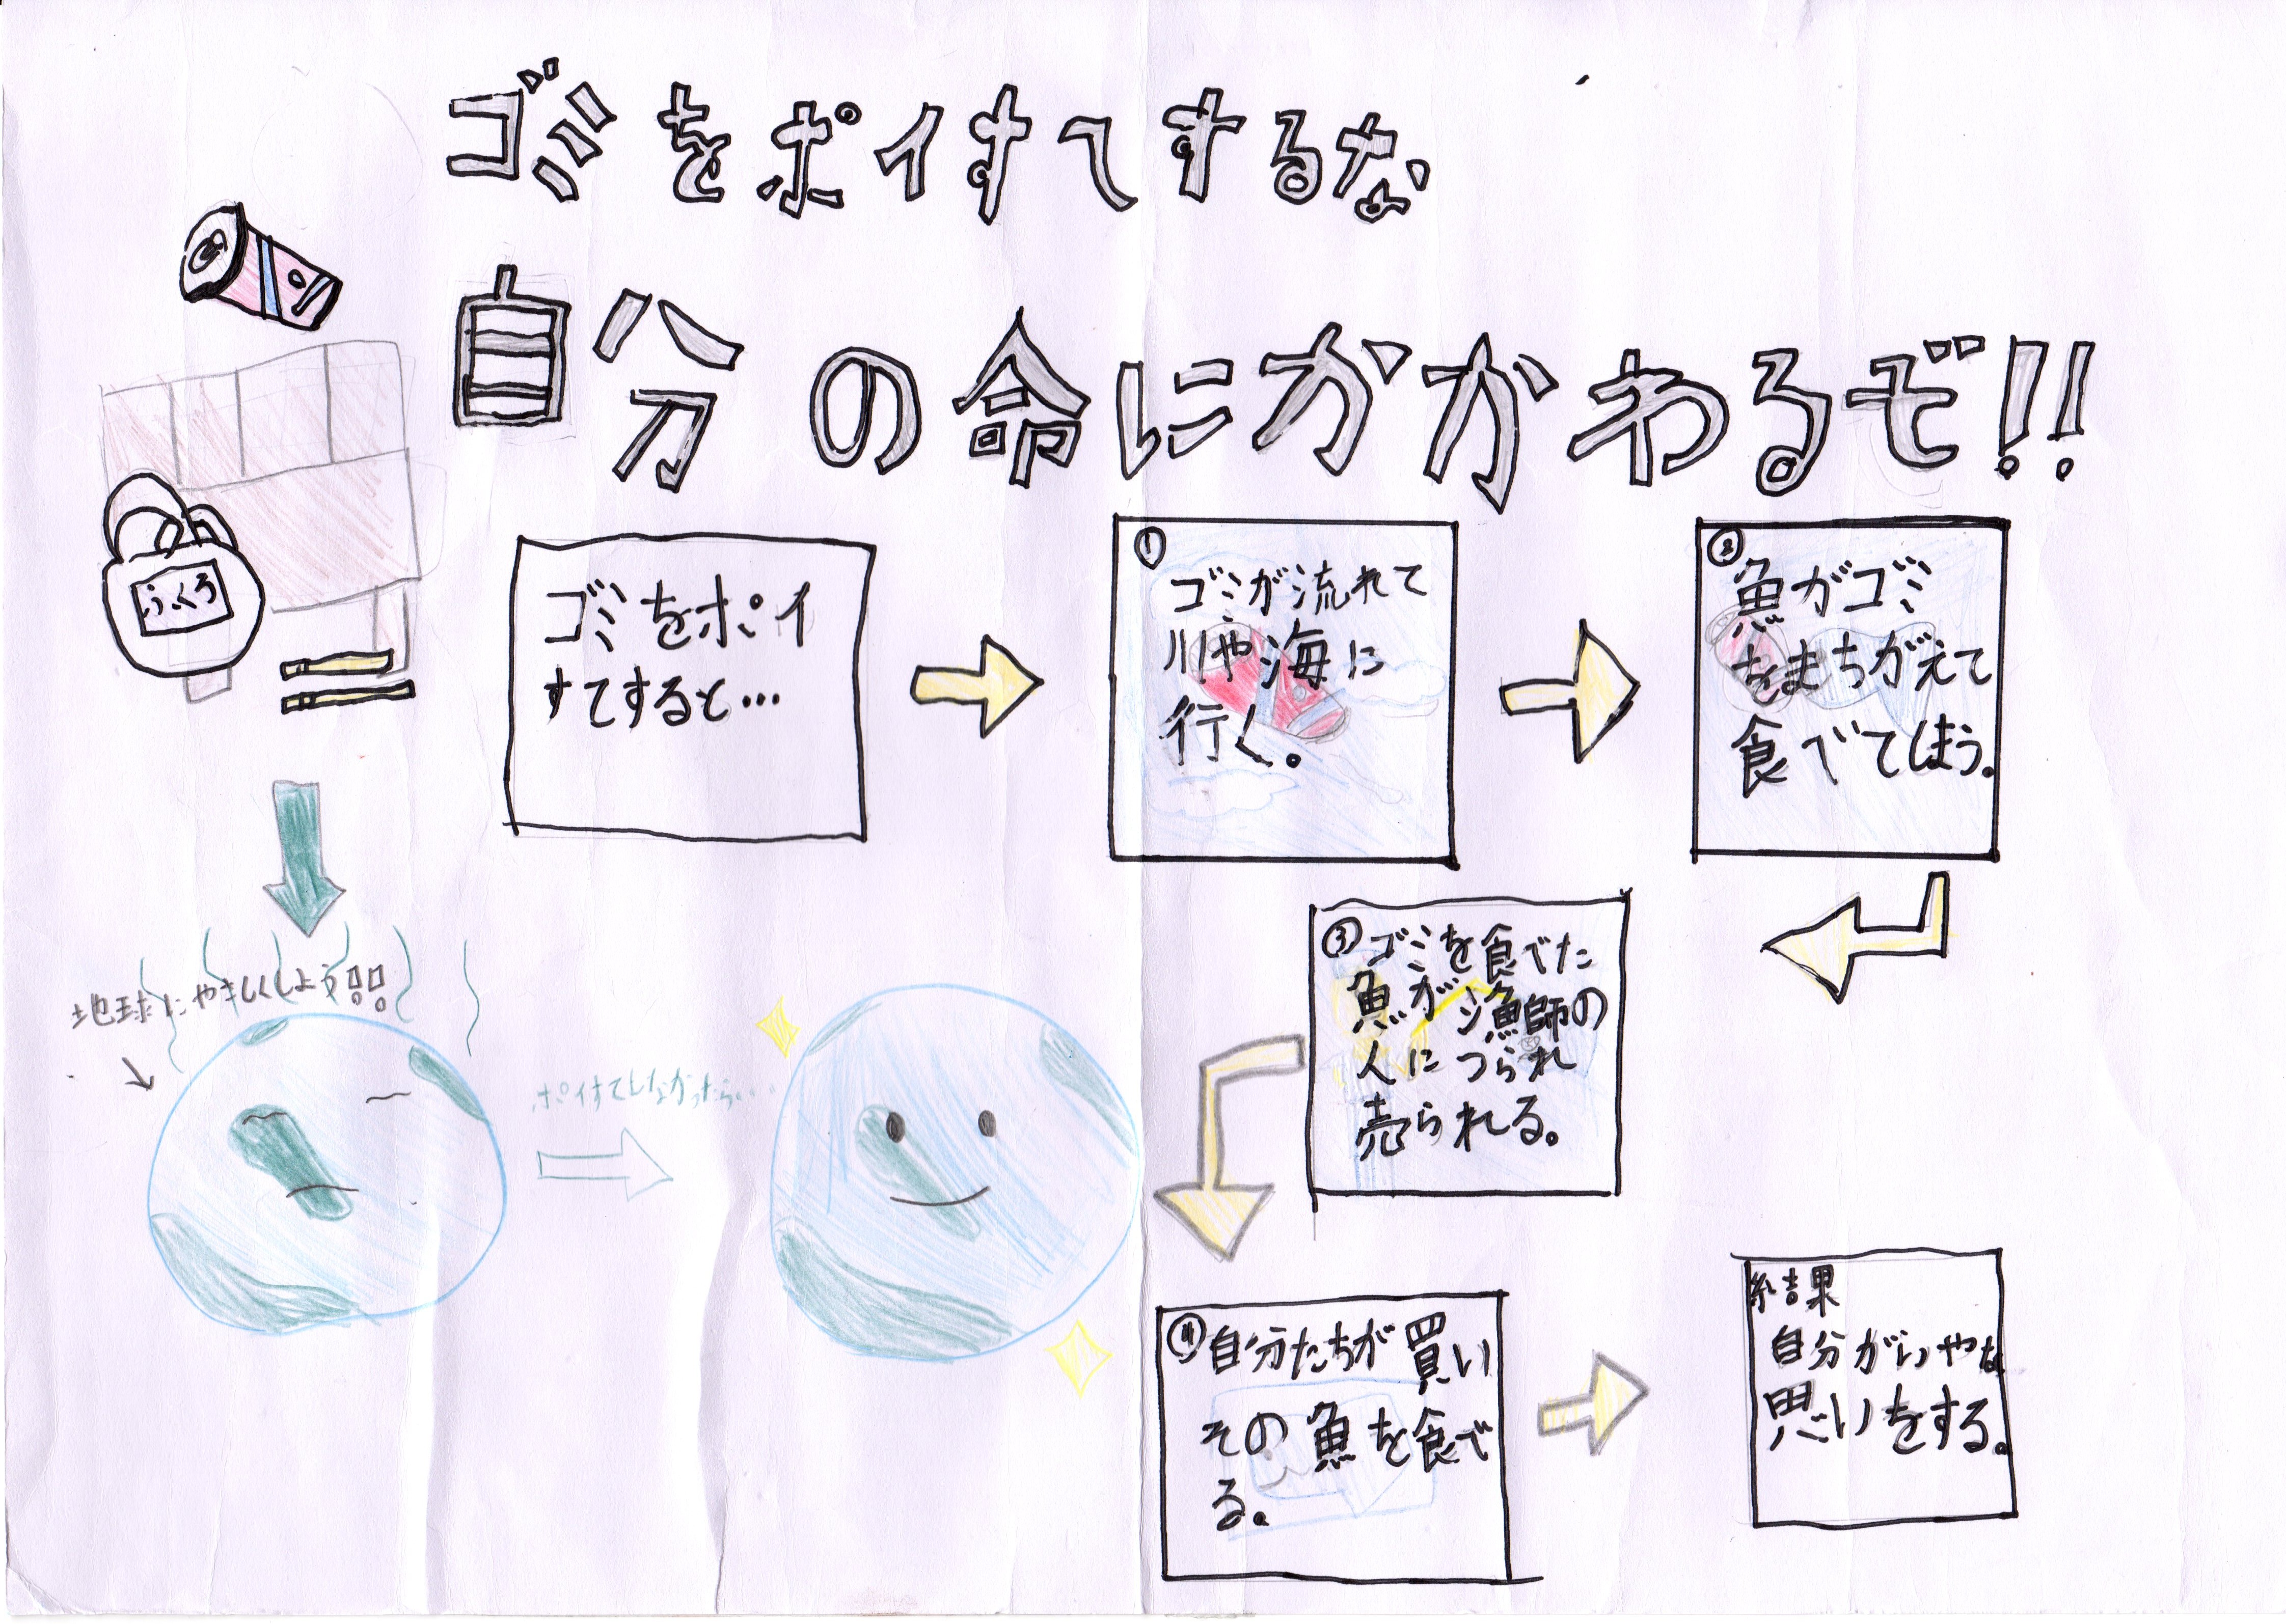 ゴミをポイすてするな
自分の命にかかわるぞ!!
ふくろ
ゴミをポイ
すてすると…
①
ゴミが流れて
川や海に
行く。
②
魚がゴミ
をまちがえて
食べてしまう。
③ゴミを食べた
魚が漁師の
人につられ
売られる。
④自分たちが買い
その魚を食べ
る。
結果
自分がいやな
思いをする。
地球にやさしくしよう!!
ポイすてしなかったら…